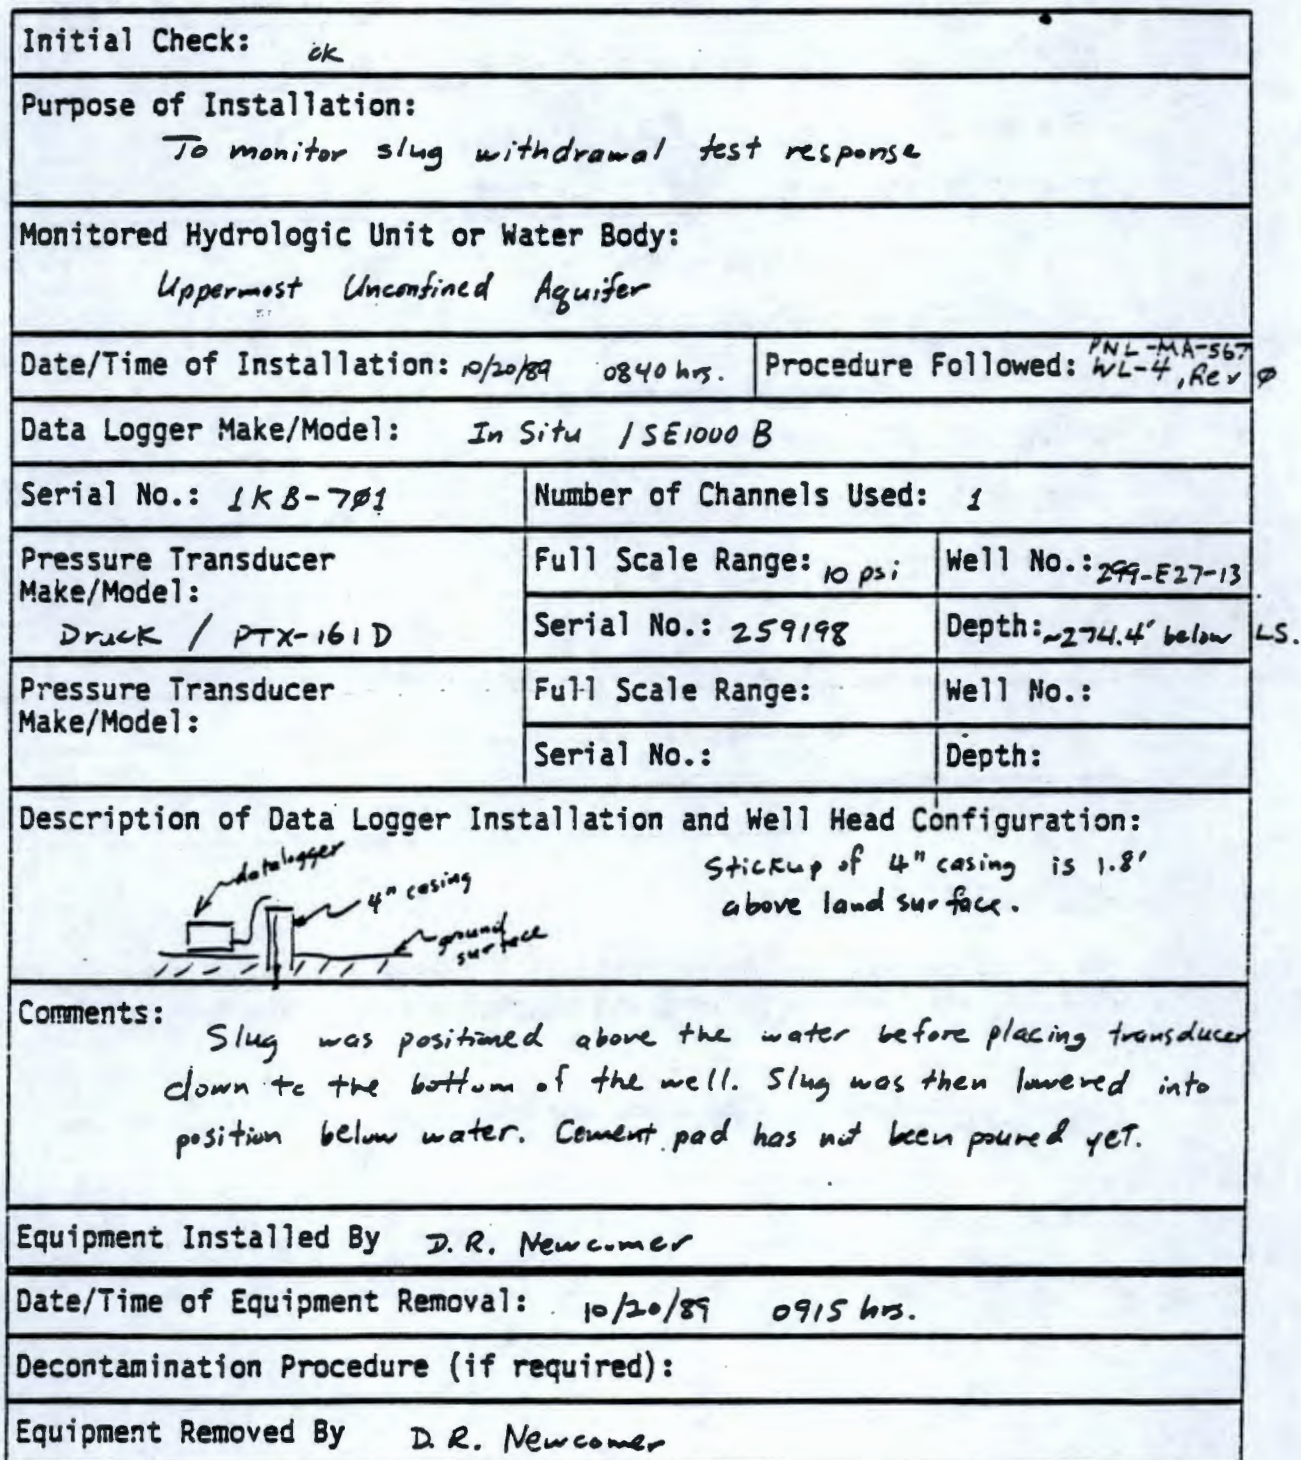 Initial Check: ok
Purpose of Installation:
To monitor slug withdrawal test response
Monitored Hydrologic Unit or Water Body:
Uppermost Unconfined Aquifer
Date/Time of Installation: 10/20/89 0840 hrs.
Procedure Followed: PNL-MA-567
WL-4, Rev Ø
Data Logger Make/Model: In Situ / SE1000 B
Serial No.: 1KB-7Ø1
Number of Channels Used: 1
Pressure Transducer
Make/Model:
Druck / PTX-161D
Full Scale Range: 10 psi
Well No.: 299-E27-13
Serial No.: 259198
Depth: ~274.4' below LS.
Pressure Transducer
Make/Model:
Full Scale Range:
Well No.:
Serial No.:
Depth:
Description of Data Logger Installation and Well Head Configuration:
datalogger
4" casing
ground
surface
Stickup of 4" casing is 1.8'
above land surface.
Comments:
Slug was positioned above the water before placing transducer
down to the bottom of the well. Slug was then lowered into
position below water. Cement pad has not been poured yet.
Equipment Installed By D. R. Newcomer
Date/Time of Equipment Removal: 10/20/89 0915 hrs.
Decontamination Procedure (if required):
Equipment Removed By D. R. Newcomer